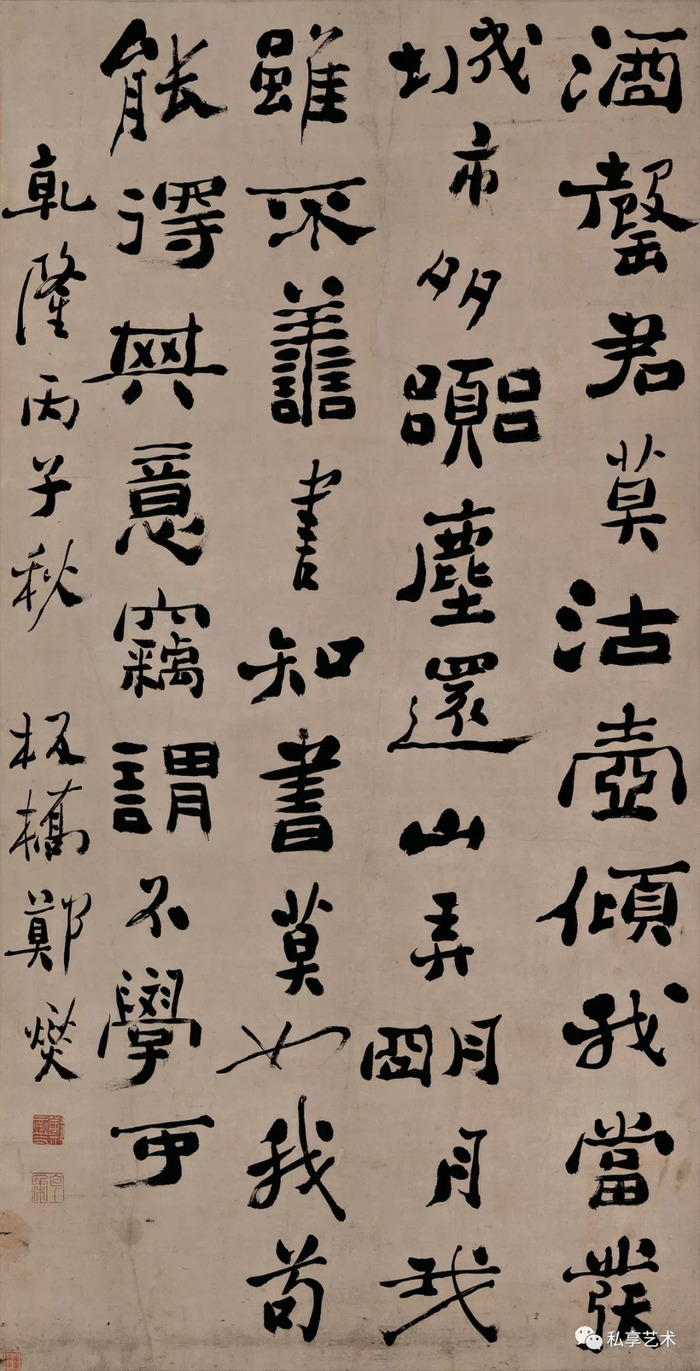 酒罄君莫沽壺傾我當發
城市多囂塵還山弄朙月我
雖不譱書知書莫如我苟
能得其意竊謂不學可
乾隆丙子秋 板橋鄭燮
私享艺术